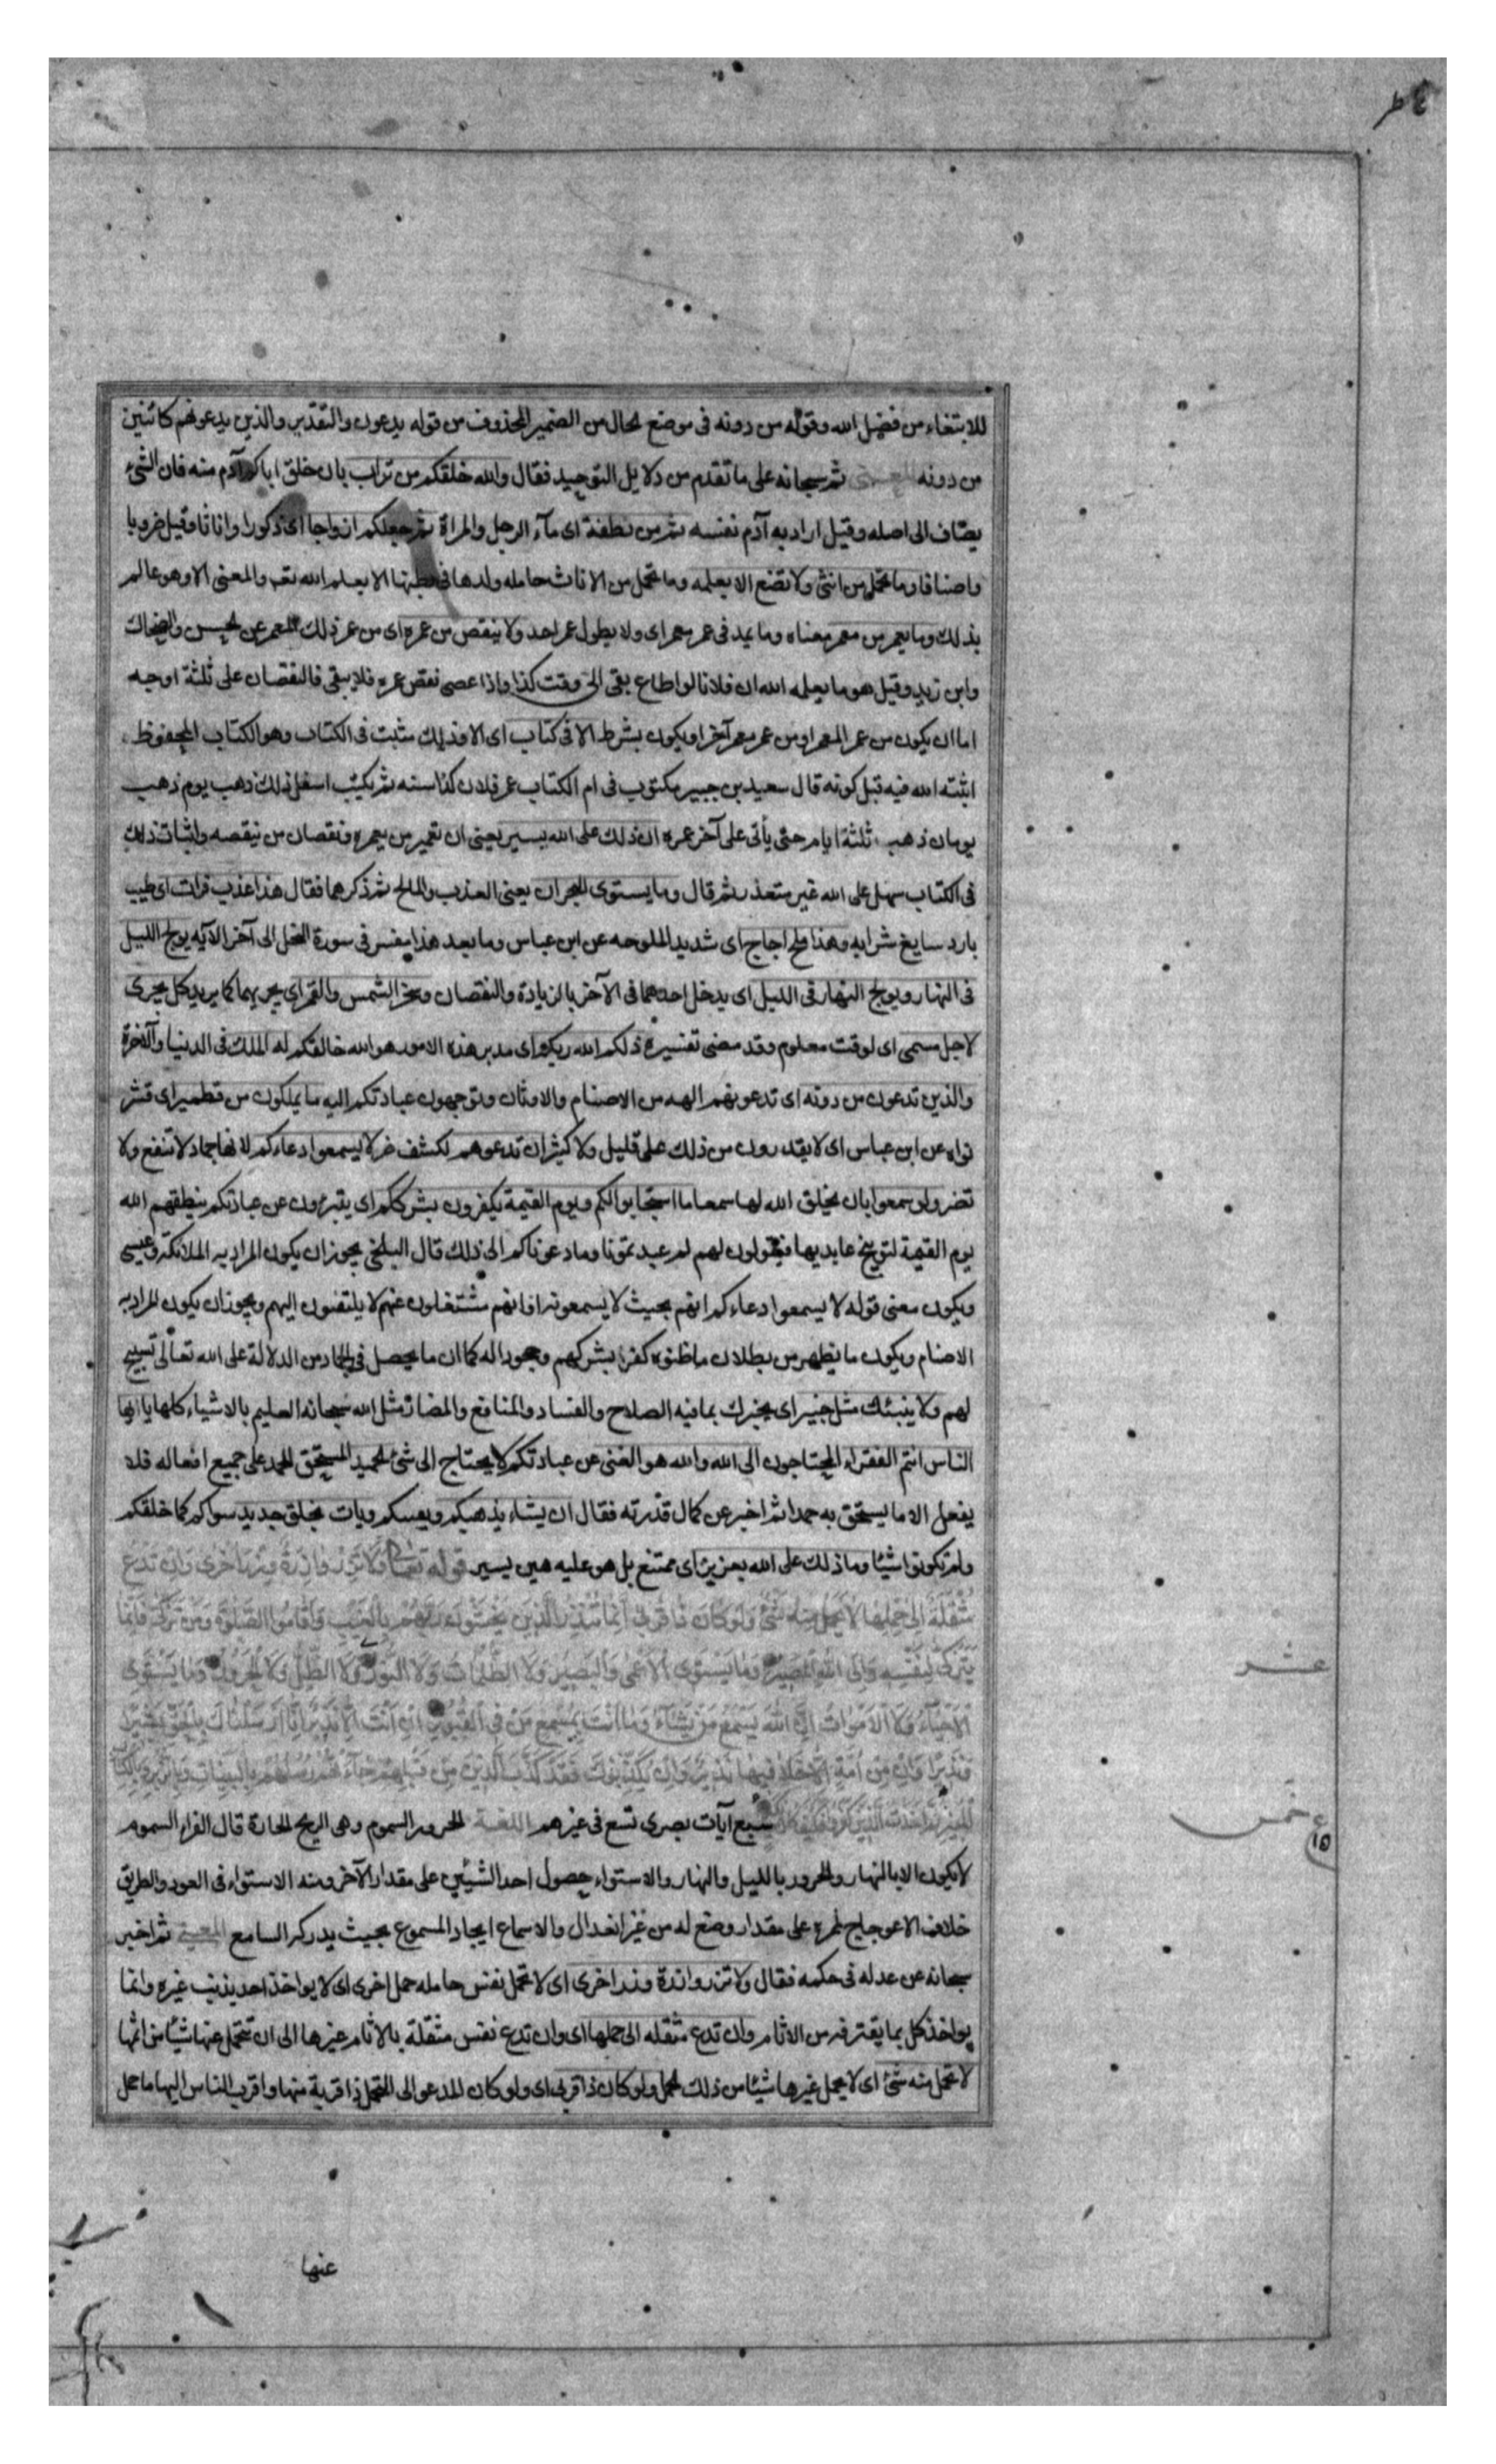 ٤ طر
للابتغاء من فضل الله وقوله من دونه فى موضع الحال من الضمير المحذوف من قوله يدعون والتقدير والذين يدعونهم كائنين
من دونه المعنى ثم سبحانه على ما تقدم من دلايل التوحيد فقال والله خلقكم من تراب بان خلق اباكم آدم منه فان الشئ
يضاف الى اصله وقيل اراد به آدم نفسه ثم من نطفة اى مآء الرجل والمراة ثم جعلكم ازواجا اى ذكورا واناثا وقيل ضروبا
واصنافا وما تحمل من انثى ولا تضع الا بعلمه وما تحمل من الاناث حامله ولدها فى بطنها الا بعلم الله تعـ والمعنى الا وهو عالم
بذلك وما يعمر من معمر معناه وما يمد فى عمر معمر اى ولا يطول عمر احد ولا ينقص من عمره اى من عمر ذلك المعمر عن الحسن والضحاك
وابن زيد وقيل هو ما يعلمه الله ان فلانا لو اطاع بقى الى وقت كذا واذا عصى نقص عمره فلا يبقى فالنقصان على ثلثة اوجه
اما ان يكون من عمر المعمر او من عمر معمر آخر او يكون بشرط الا فى كتاب اى الا وذلك مثبت فى الكتاب وهو الكتاب المحفوظ
اثبته الله فيه قبل كونه قال سعيد بن جبير مكتوب فى ام الكتاب عمر فلان كذا سنه ثم يكتب اسفل ذلك ذهب يوم ذهب
يومان ذهب ثلثة ايام حتى يأتى على آخر عمره ان ذلك على الله يسير يعنى ان تعمير من يعمره ونقصان من ينقصه واثبات ذلك
فى الكتاب سهل على الله غير متعذر ثم قال وما يستوى البحران يعنى العذب والمالح ثم ذكرهما فقال هذا عذب فرات اى طيب
بارد سايغ شرابه وهذا ملح اجاج اى شديد الملوحه عن ابن عباس وما بعد هذا مفسر فى سورة النحل الى آخر الآيه يولج الليل
فى النهار ويولج النهار فى الليل اى يدخل احدهما فى الآخر بالزيادة والنقصان وسخر الشمس والقمر اى يجريهما كما يريد كل يجرى
لاجل مسمى اى لوقت معلوم وقد مضى تفسيره ذلكم الله ربكم اى مدبر هذه الامور هو الله خالقكم له الملك فى الدنيا والآخرة
والذين تدعون من دونه اى تدعونهم الهه من الاصنام والاوثان وتوجهون عبادتكم اليه ما يملكون من قطمير اى قشر
نواه عن ابن عباس اى لا يقدرون من ذلك على قليل ولا كثير ان تدعوهم لكشف ضر لا يسمعوا دعاءكم لانها جماد لا تنفع ولا
تضر ولو سمعوا بان يخلق الله لها سمعا ما استجابوا لكم ويوم القيمة يكفرون بشرككم اى يتبرءون عن عبادتكم ينطقهم الله
يوم القيمة لتوبيخ عابديها فيقولون لهم لم عبدتمونا وما دعوناكم الى ذلك قال البلخى يجوز ان يكون المراد به الملائكة وعيسى
ويكون معنى قوله لا يسمعوا دعاءكم انهم بحيث لا يسمعونه او انهم مشتغلون عنهم لا يلتفتون اليهم ويجوز ان يكون المراد به
الاصنام ويكون ما يظهر من بطلان ما ظنوه كفرا بشركهم وجحودا له كما ان ما يحصل فى الجماد من الدلالة على الله تعالى تسبيح
لهم ولا ينبئك مثل خبير اى يخبرك بما فيه الصلاح والفساد والمنافع والمضار مثل الله سبحانه العليم بالاشياء كلها يا ايها
الناس انتم الفقراء المحتاجون الى الله والله هو الغنى عن عبادتكم لا يحتاج الى شئ الحميد المستحق للحمد على جميع افعاله فلا
يفعل الا ما يستحق به حمدا ثم اخبر عن كمال قدرته فقال ان يشاء يذهبكم ويفنيكم ويات بخلق جديد سواكم كما خلقكم
ولم تكونوا شيئا وما ذلك على الله بعزيز اى ممتنع بل هو عليه هين يسير قوله تعالى وَلَا تَزِرُ وَازِرَةٌ وِزْرَ أُخْرَى وَاِنْ تَدْعُ
مُثْقَلَةٌ اِلَى حِمْلِهَا لَا يُحْمَلْ مِنْهُ شَئٌ وَلَوْ كَانَ ذَا قُرْبَى اِنَّمَا تُنْذِرُ الَّذِينَ يَخْشَوْنَ رَبَّهُمْ بِالْغَيْبِ وَاَقَامُوا الصَّلَوةَ وَمَنْ تَزَكَّى فَاِنَّمَا
يَتَزَكَّى لِنَفْسِهِ وَاِلَى اللهِ الْمَصِيرُ وَمَا يَسْتَوِى الْاَعْمَى وَالْبَصِيرُ وَلَا الظُّلُمَاتُ وَلَا النُّورُ وَلَا الظِّلُّ وَلَا الْحَرُورُ وَمَا يَسْتَوِى
الْاَحْيَآءُ وَلَا الْاَمْوَاتُ اِنَّ اللهَ يُسْمِعُ مَنْ يَشَآءُ وَمَا اَنْتَ بِمُسْمِعٍ مَنْ فِى الْقُبُورِ اِنْ اَنْتَ اِلَّا نَذِيرٌ اِنَّا اَرْسَلْنَاكَ بِالْحَقِّ بَشِيرًا
وَنَذِيرًا وَاِنْ مِنْ اُمَّةٍ اِلَّا خَلَا فِيهَا نَذِيرٌ وَاِنْ يُكَذِّبُوكَ فَقَدْ كَذَّبَ الَّذِينَ مِنْ قَبْلِهِمْ جَآءَتْهُمْ رُسُلُهُمْ بِالْبَيِّنَاتِ وَبِالزُّبُرِ وَبِالْكِتَابِ
الْمُنِيرِ ثُمَّ اَخَذْتُ الَّذِينَ كَفَرُوا فَكَيْفَ كَانَ نَكِيرِ سبع آيات بصرى تسع فى غيرهم اللغـة الحرور السموم وهى الريح الحارة قال الفراء السموم
لا يكون الا بالنهار والحرور بالليل والنهار والاستواء حصول احد الشيئين على مقدار الآخر ومنه الاستواء فى العود والطريق
خلاف الاعوجاج لمره على مقدار وضع له من غير انعدال والاسماع ايجاد المسموع بحيث يدركه السامع المعنى ثم اخبر
سبحانه عن عدله فى حكمه فقال ولا تزر وازرة وزر اخرى اى لا تحمل نفس حامله حمل اخرى اى لا يواخذ احد بذنب غيره وانما
يواخذ كل بما يقترفه من الاثام وان تدع مثقله الى حملها اى وان تدع نفس مثقلة بالاثام غيرها الى ان تتحمل عنها شيئا من اثمها
لا يحمل منه شئ اى لا يحمل غيرها شيئا من ذلك الحمل ولو كان ذا قربى اى ولو كان المدعو الى التحمل ذا قربة منها واقرب الناس اليها ما حمل
عشر
خمس
ع ١٥
عنها